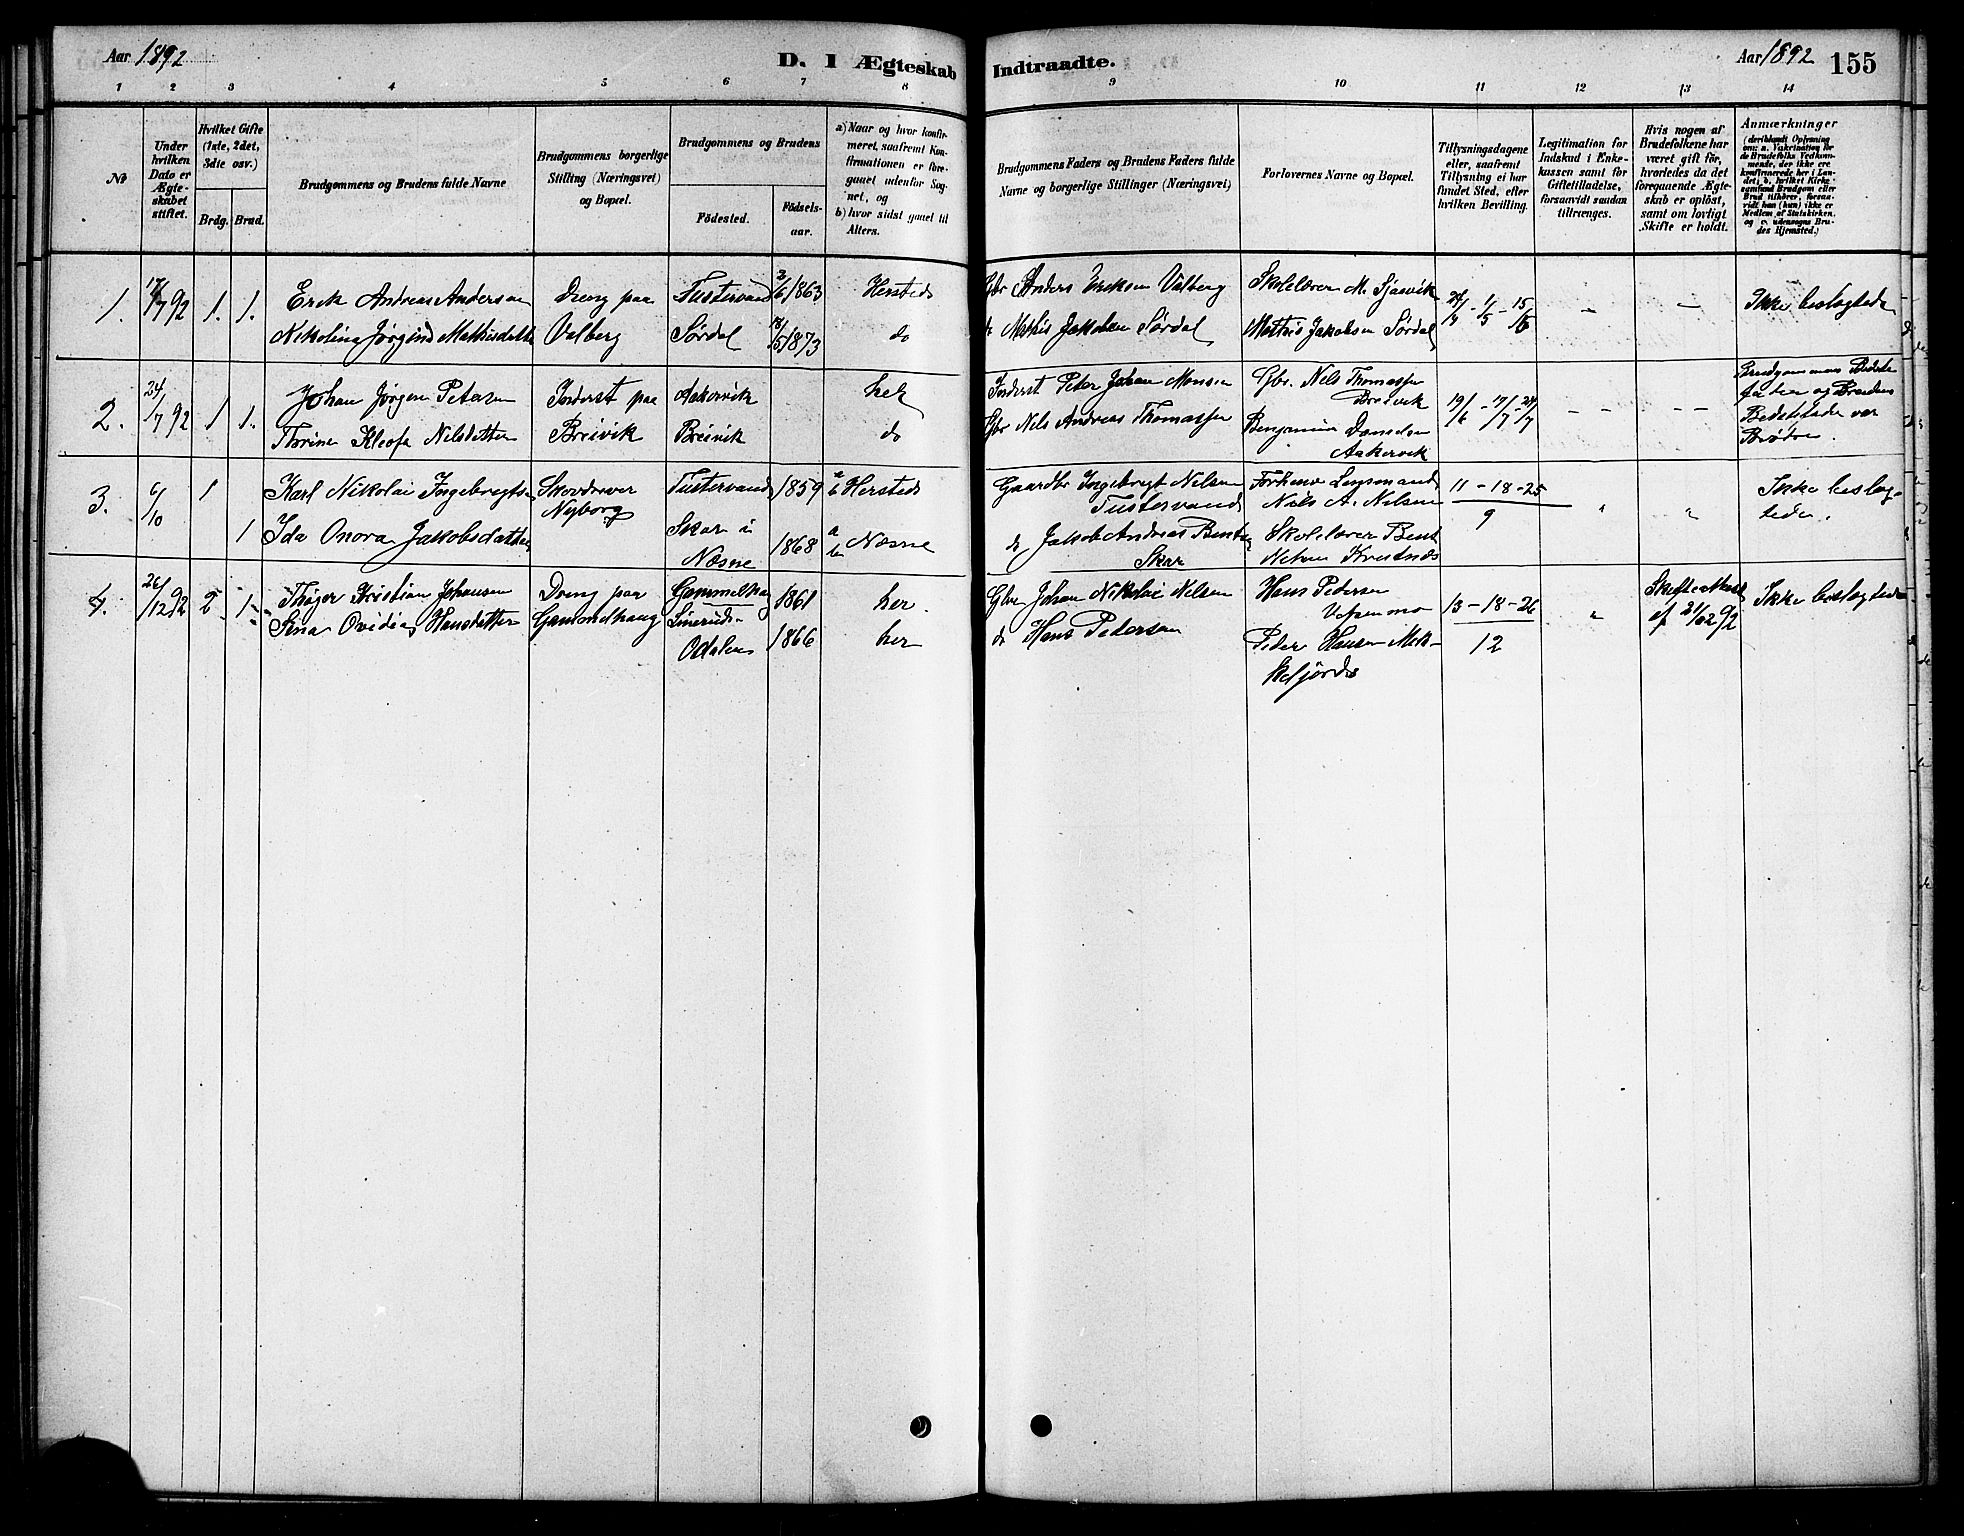 Aar 1892
D. I Ægteskab Indtraadte.
Aar 1892 155
1 2 3 4 5 6 7 8 9 10 11 12 13 14
No
Under hvilken Dato er Ægteskabet stiftet.
Hvilket Gifte (1ste, 2det, 3die osv.)
Brdg. Brud.
Brudgommens og Brudens fulde Navne
Brudgommens borgerlige Stilling (Næringsvei) og Bopæl.
Brudgommens og Brudens
Fødested. Fødselsaar.
a) Naar og hvor konfirmeret, saafremt Konfirmationen er foregaaet udenfor Sognet, og
b) hvor sidst gaaet til Alters.
Brudgommens Faders og Brudens Faders fulde Navne og borgerlige Stillinger (Næringsvei)
Forlovernes Navne og Bopæl.
Tillysningsdagene eller, saafremt Tillysning ei har fundet Sted, efter hvilken Bevilling.
Legitimation for Indskud i Enkekassen samt for Giftetilladelse, forsaavidt saadan tiltrænges.
Hvis nogen af Brudefolkene har været gift før, hvorledes da det foregaaende Ægteskab er opløst, samt om lovligt Skifte er holdt.
Anmærkninger
(deriblandt Oplysning om: a. Vakcination for de Brudefolks Vedkommende, der ikke ere konfirmerede her i Landet, b. hvilket Kirkesamfund Brudgom eller Brud tilhører, forsaavidt han (hun) ikke er Medlem af Statskirken, og c. udensogns Brudes Hjemsted.)
1. 17/7 92 1. 1. Erik Andreas Andersen Dreng paa Tustervand 2/6 1863 Hersteds Gbr Anders Eriksen Valberg Skolelærer M. Sjaavik 24/3 - 1/5 - 15/5 - — Ikke beslægtede
Nikolina Jørgine Mathisdatter Valberg Sørdal 18/5 1873 do do Mathis Jakobsen Sørdal Mathis Jakobsen Sørdal
2. 24/7 92 1 1. Johan Jørgen Petersen Inderst paa Aakervik her Inderst Peter Johan Monsen Gbr. Nils Thomassen Breivik 19/6 - 17/7 - 24/7 - - - - Brudgommens Bedstefader og Brudens Bedstefader var Brødre.
Thorine Kleofa Nilsdatter Breivik Breivik do Gbr Nils Andreas Thomassen Benjamin Danielsen Aakervik
3. 6/10 1 Karl Nikolai Ingebrigts. Skovdriver Nyborg Tustervand 1859 a b Hersteds Gaardbr Ingebrigt Nilsen Tustervand Forhenv Lensmand Nils A. Nilsen 11 - 18 - 25 / 9 " " Ikke beslægtede.
1 Ida Onora Jakobsdatter Skar i Næsne 1868 a b Næsne do Jakob Andreas Bentsen Skar Skolelærer Bent
4. 26/12 92 2 1 Thøger Kristian Johansen Dreng paa Gammelhaug 1861 her. Gbr Johan Nikolai Nilsen Hans Pedersen Vefsenmo 13 - 18 - 26 / 12 " Skifteattest af 21/12 92 Ikke beslægtede
Sina Ovidia Hansdatter Gammelhaug Odalen 1866 her do Hans Pedersen Peder Hansen